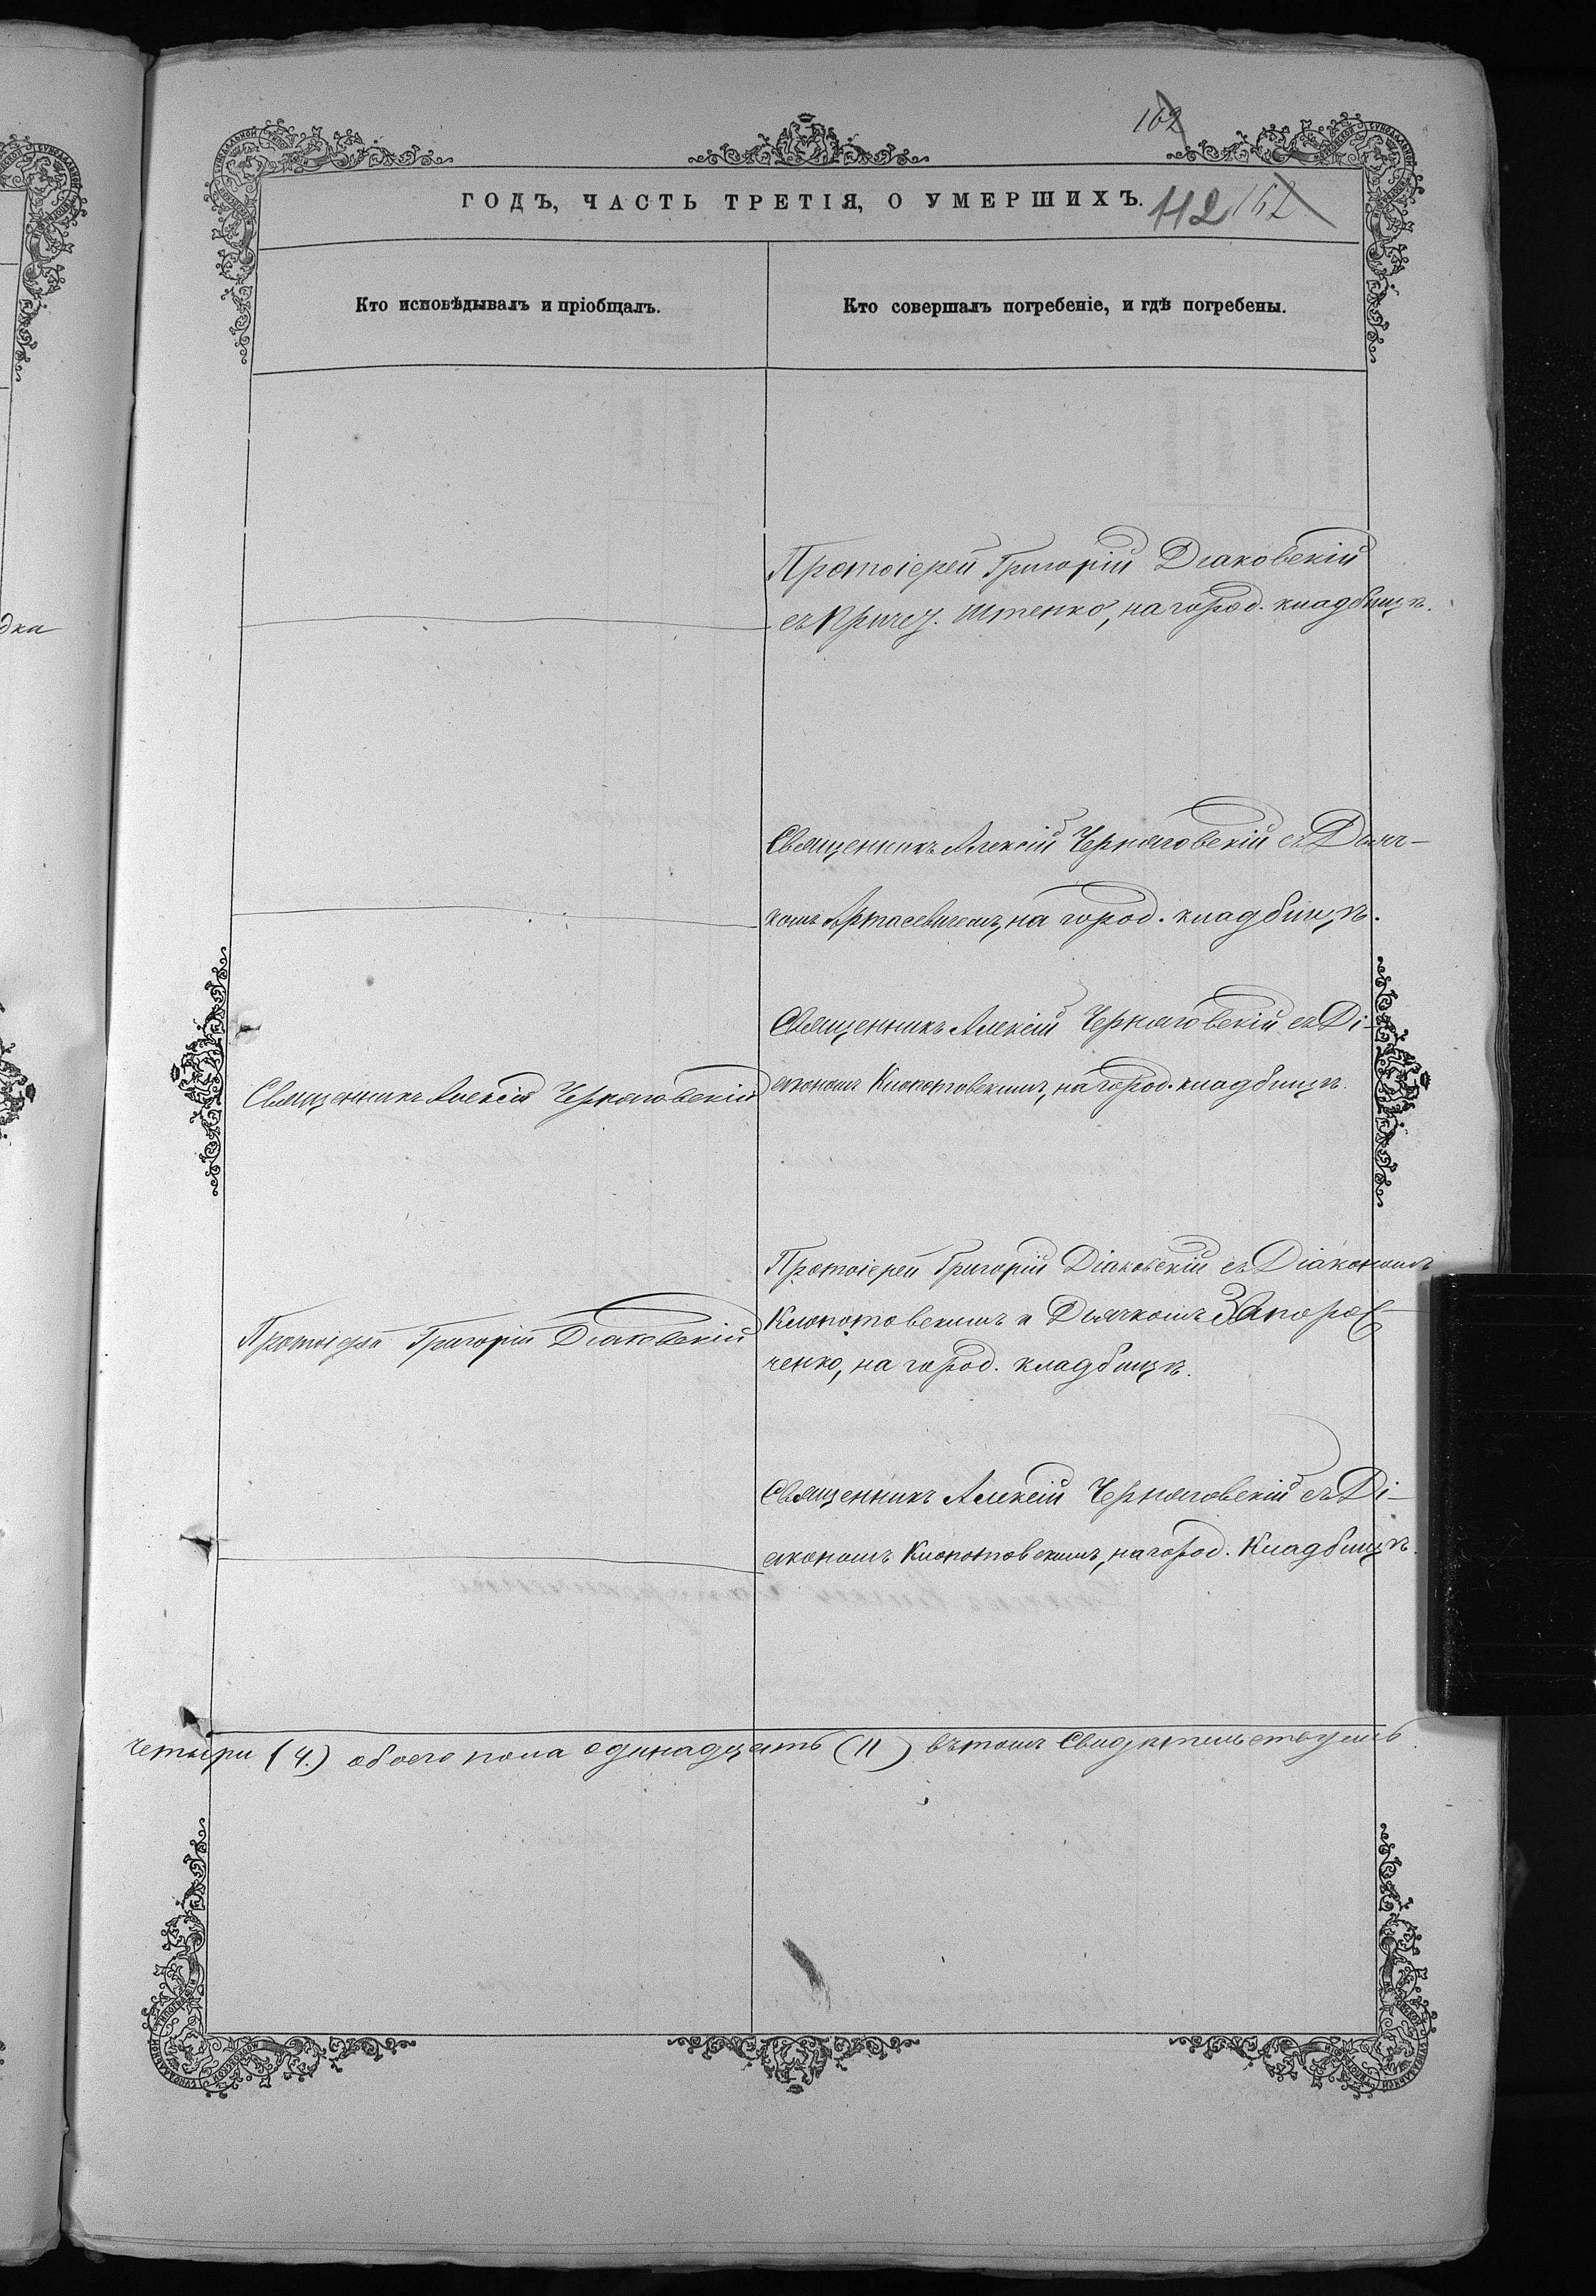 162
ГОДЪ, ЧАСТЬ ТРЕТІЯ, О УМЕРШИХЪ.
112 162
Кто исповѣдывалъ и пріобщалъ.
Кто совершалъ погребеніе, и гдѣ погребены.
Протоіерей Григорій Діаковскій
съ Причет. Штенко, на город. кладбищѣ.
Священникъ Алексій Черняговскій съ Дьяч-
комъ Артасевичемъ, на город. кладбищѣ.
Священникъ Алексій Черняговскій
Священникъ Алексій Черняговскій съ Ді-
акономъ Клопотовскимъ, на город. кладбищѣ.
Протоіерей Григорій Діаковскій
Протоіерей Григорій Діаковскій съ Діакономъ
Клопотовскимъ и Дьячкомъ Запоро-
ченко, на город. кладбищѣ.
Священникъ Алексій Черняговскій съ Ді-
акономъ Клопотовскимъ, на город. Кладбищѣ.
четыри (4.) обоего пола одинадцать (11) вътомъ Свидѣтельствуемъ
дка